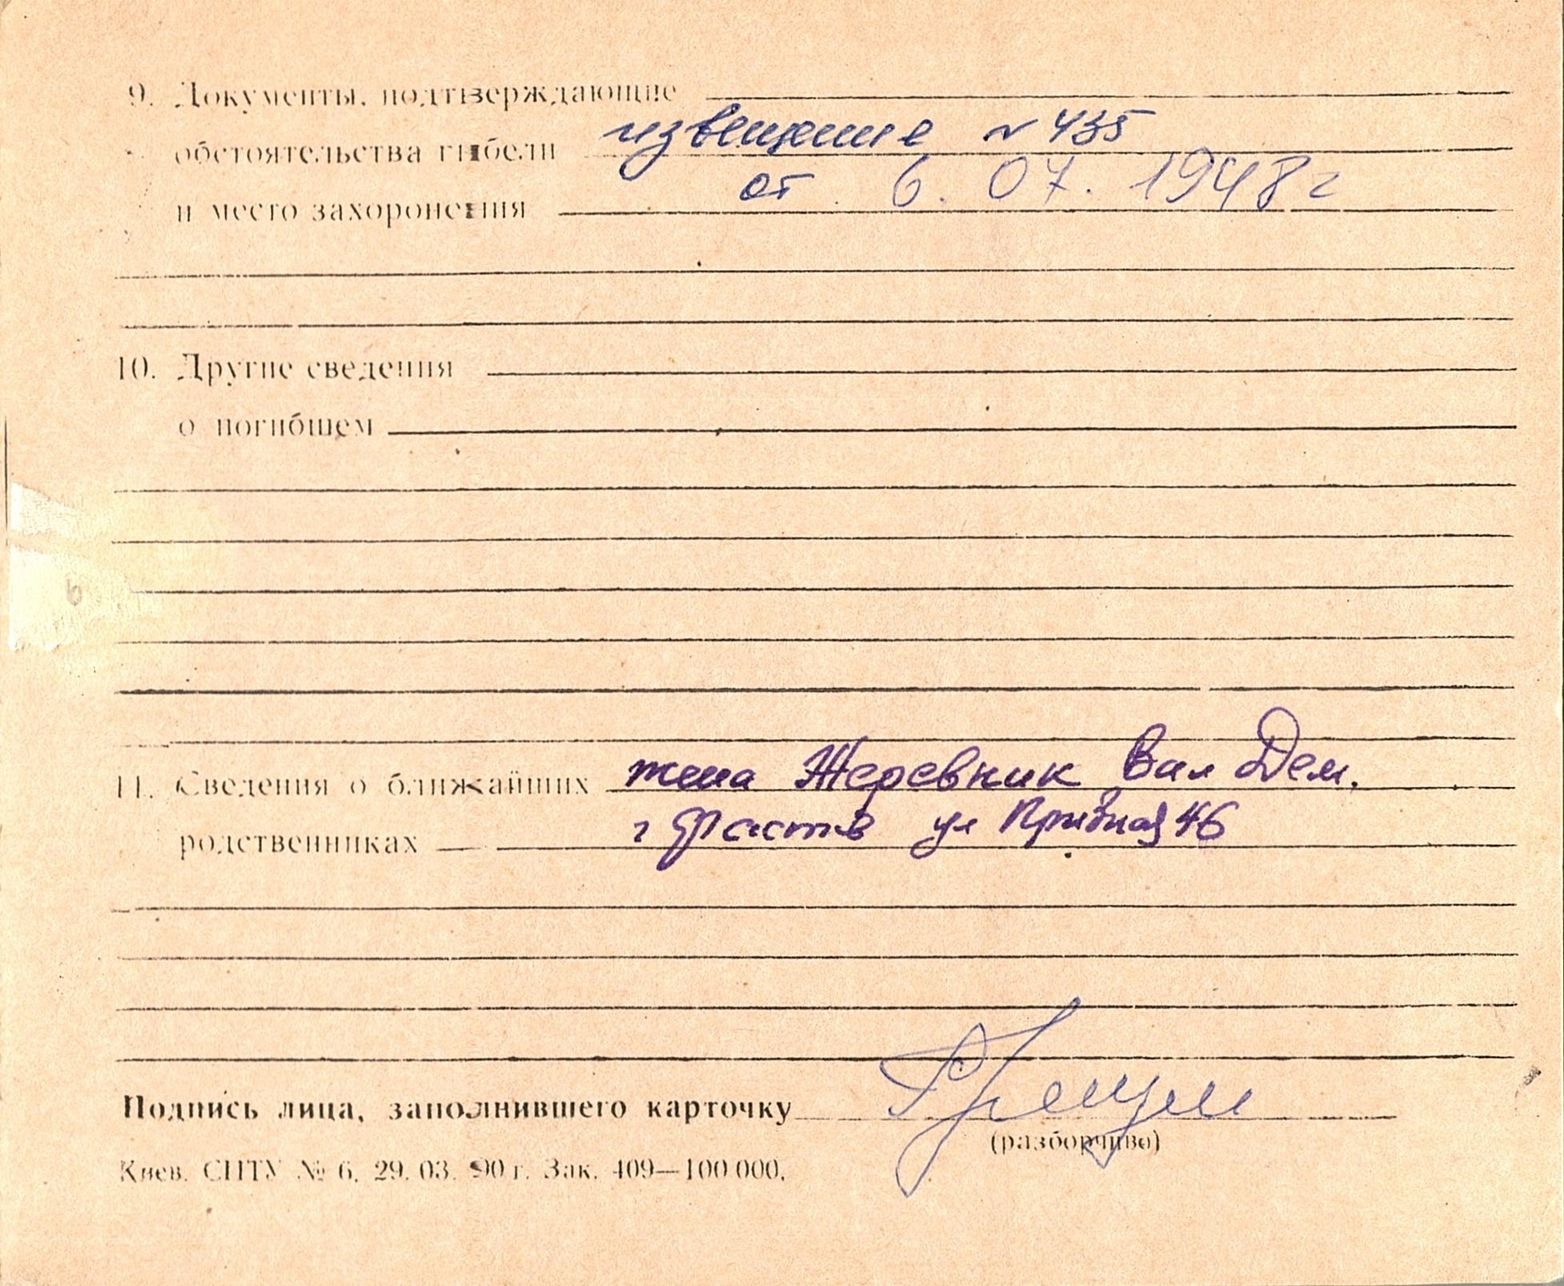 9. Документы, подтверждающие
обстоятельства гибели извещение N 435
и место захоронения от 6. 07. 1948 г
10. Другие сведения
о погибшем
6
11. Сведения о ближайших жена Жеревник Вал Дем.
родственниках г Фастов ул 46
Подпись лица, заполнившего карточку
(разборчиво)
Киев. СПТУ № 6. 29. 03. 90 г. Зак. 409—100 000.